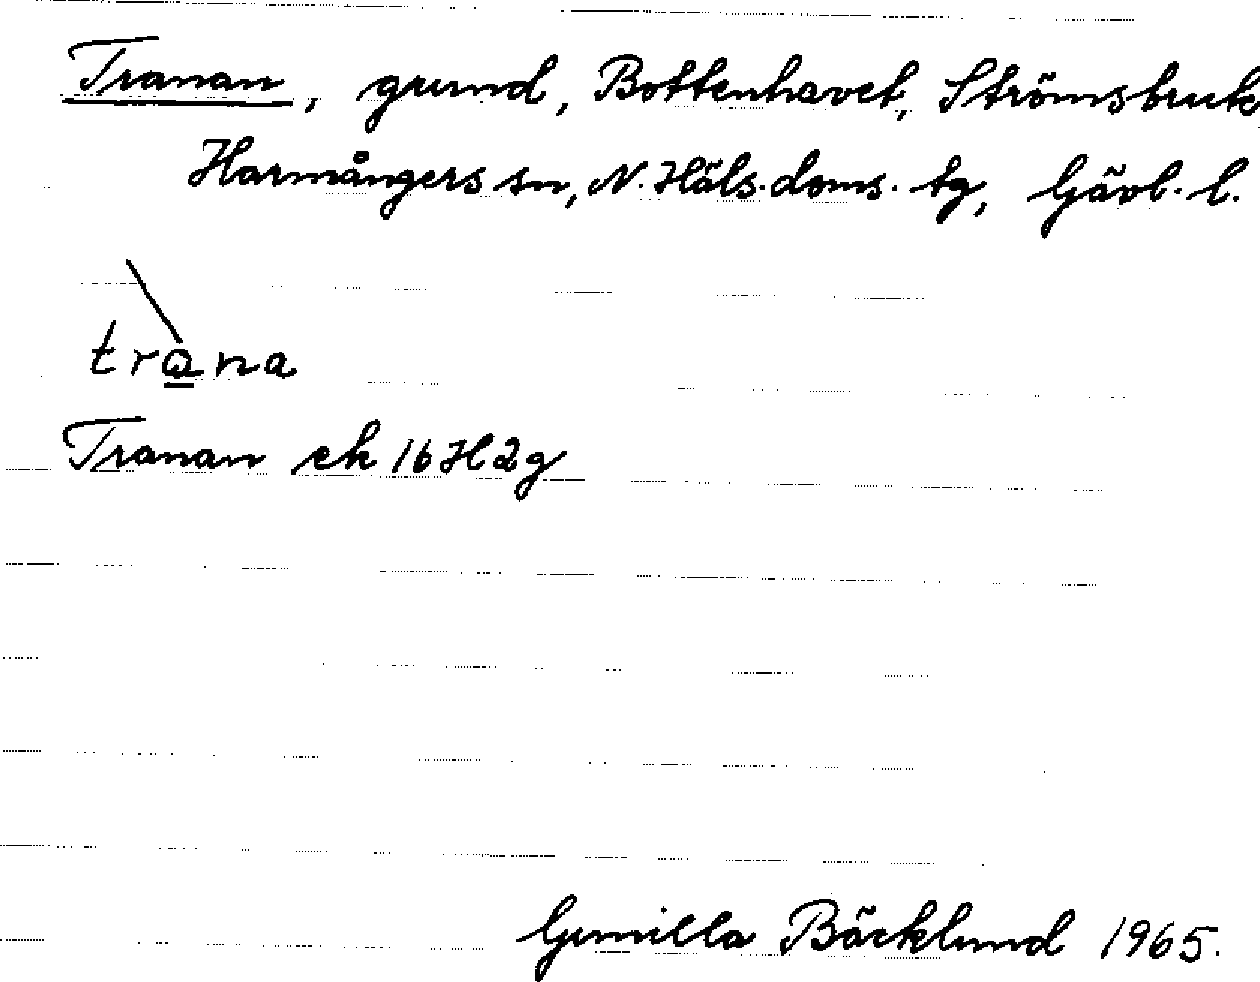 Tranan, grund, Bottenhavet, Strömsbruk
Harmångers sn, N. Häls. doms. tg, Gävl. l.
trana
Tranan ek 16H2g
Gunilla Bäcklund 1965.